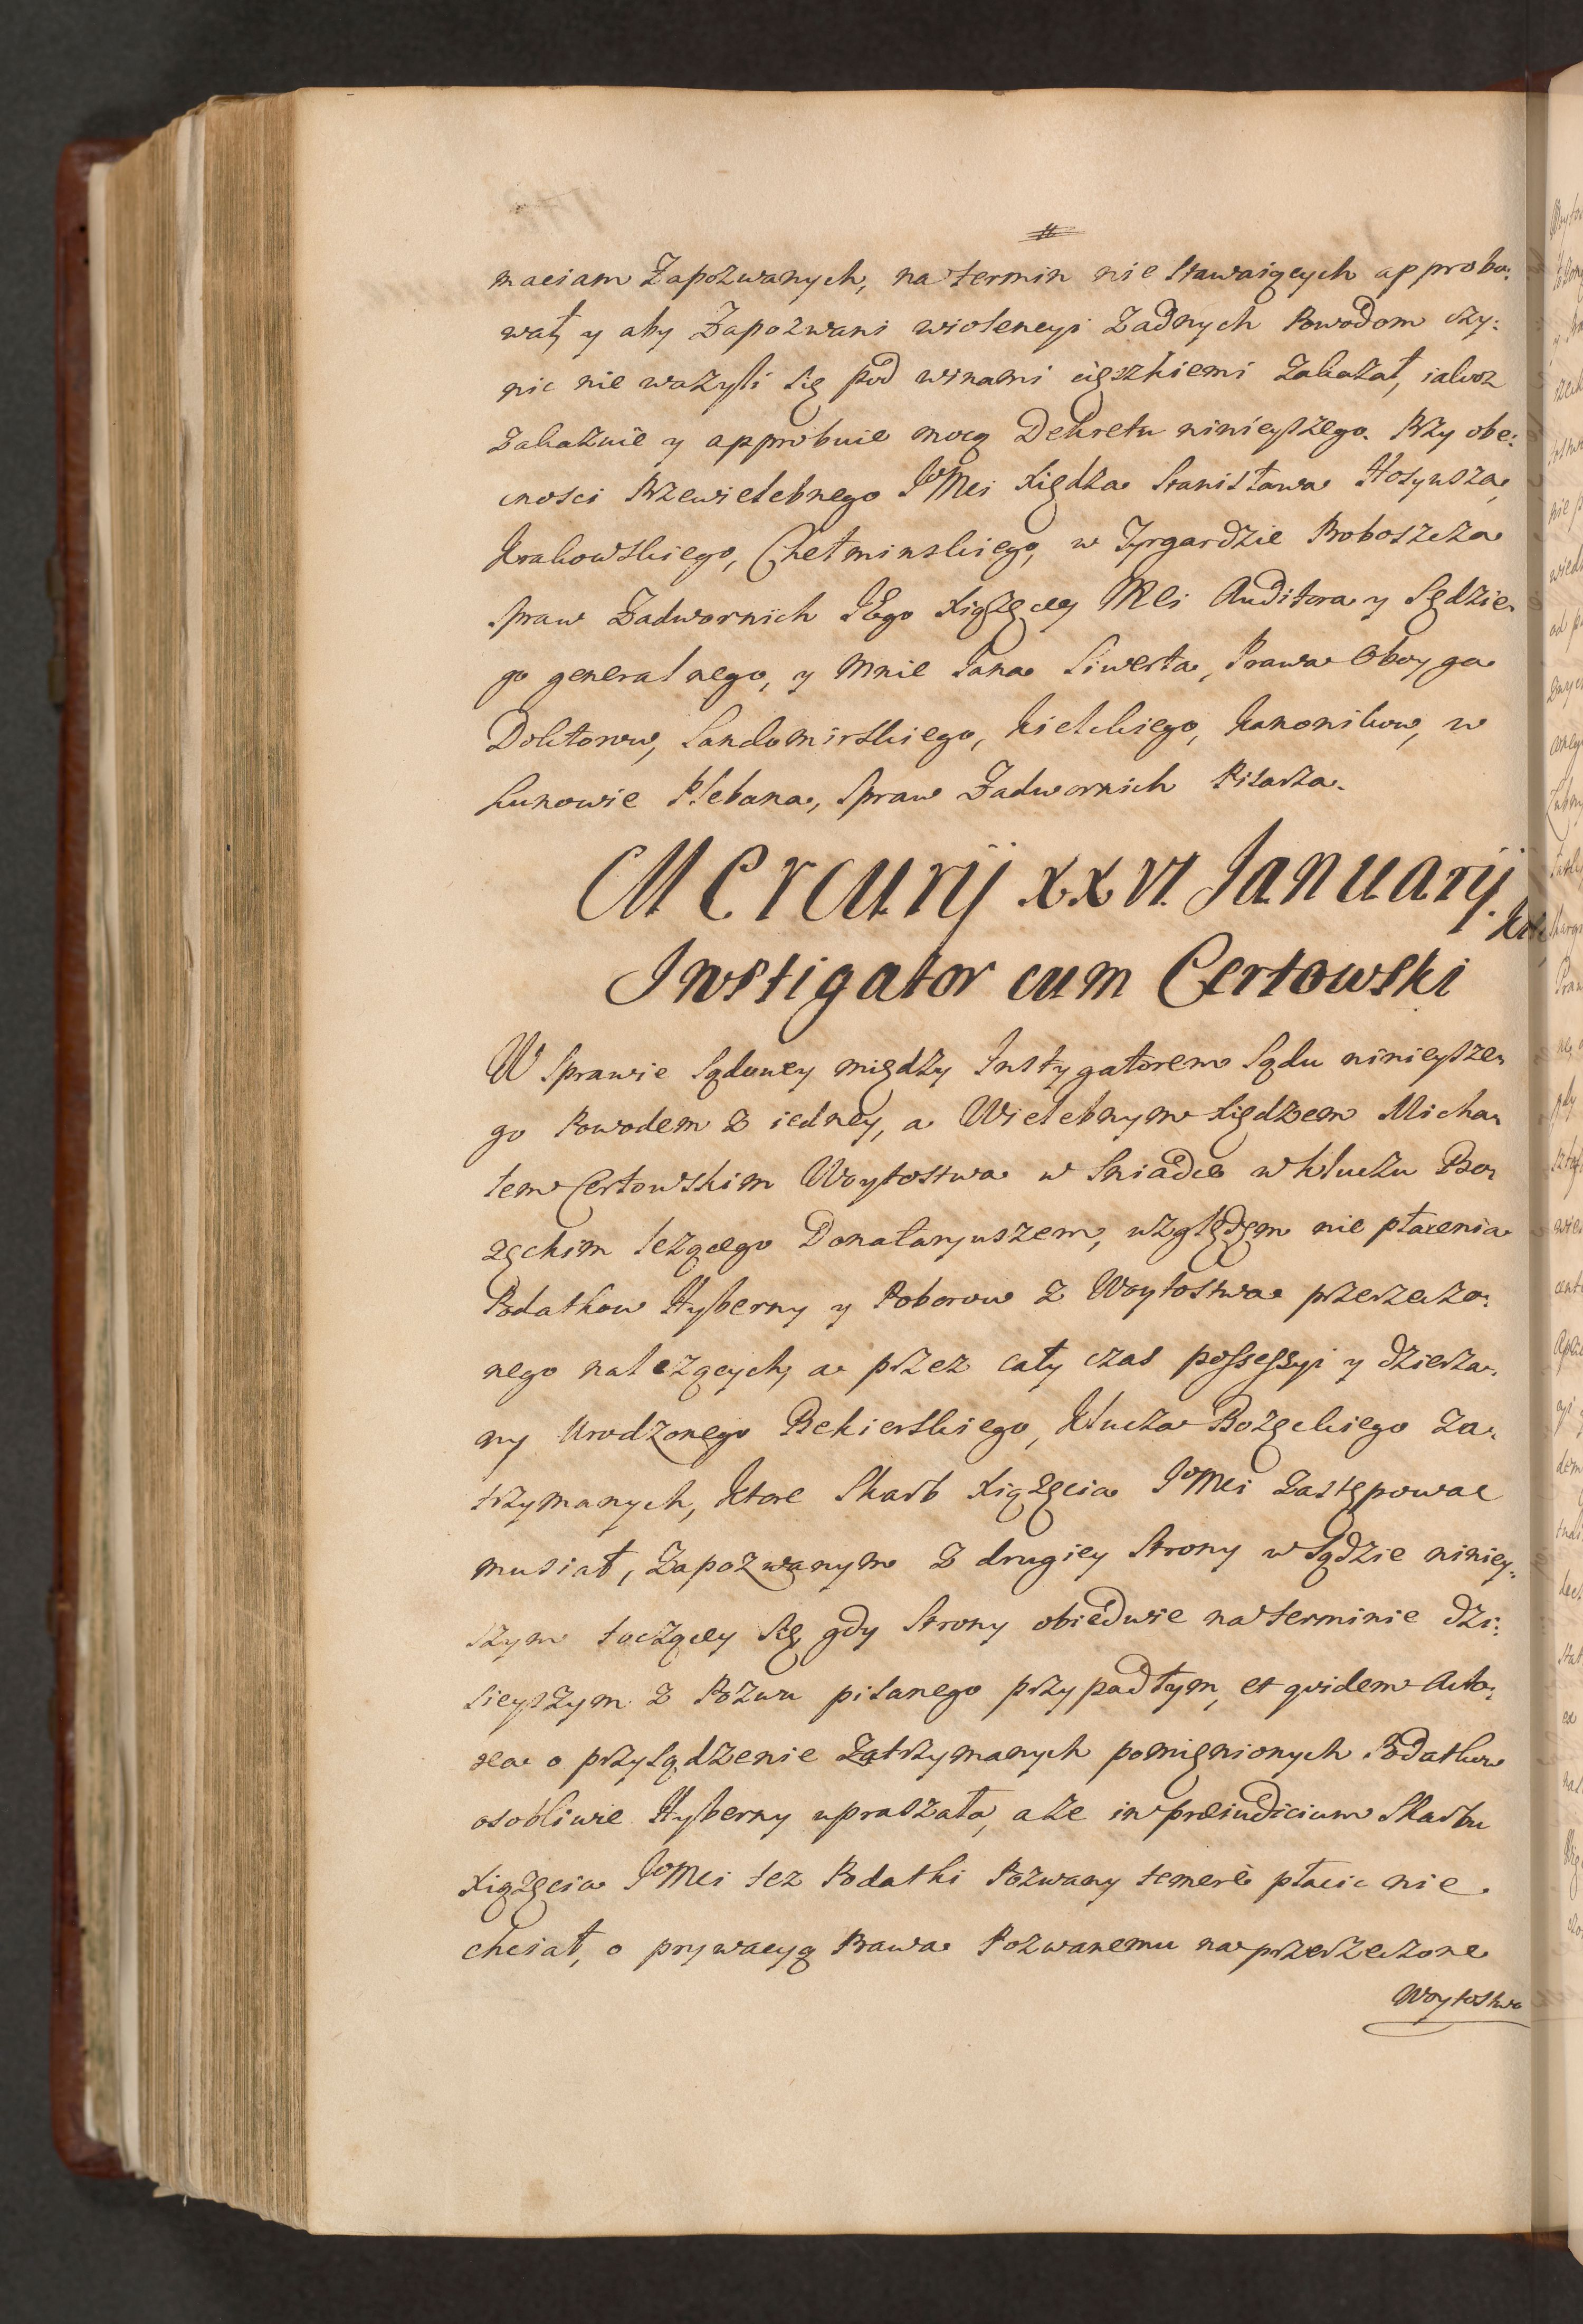 maciam Zapozwanych, na termin nie stawaiących approbo:
wał, y aby Zapozwani wiolencyi żadnych Powodom czy:
nic nie ważyli się pod winami cięszkiemi zakazał, iakoz
zakazuie y approbuie mocą Dekretu ninieyszego. Przy obe:
cnosci Przewielebnego JoMci Xiędza Stanisława Hosyusza,
Krakowskiego, Chełminskiego, w Tyrgardzie Proboszcza
Spraw Zadwornich JEgo Xiążęcey Mci Auditora y Sędzie:
go generalnego, y mnie Jana Siwerta, Prawa Oboyga
Doktorow, Sandomirskiego, Kielckiego, Kanonikow, w
Kunowie Plebana, Spraw Zadwornich Pisarza.
Mercurij XXVI Januarij.
Instigator cum Certowski
W Sprawie Sądowey między Instygatorem Sądu ninieysze:
go Powodem z iedney, a Wielebnym Xiędzem Micha:
łem Certowskim Woytostwa w Sniadce w Kluczu Bo:
zęckim leżącego Donataryuszem, względem nie płacenia
Podatkow Hyberny y Poborow z Woytostwa przerzeczo:
nego należących, a przez cały czas possessyi y dzierża:
ny Urodzonego Bekierskiego, Klucza Bozęckiego za:
trzymanych, ktore Skarb Xiążęcia JoMci zastępowac
musiał, Zapozwanym z drugiey strony w Sądzie niniey:
szym toczącey się, gdy Strony obiedwie na terminie dzi:
sieyszym z Pozwu pisanego przypadłym, et quidem Acto:
rea o przysądzenie zatrzymanych pomięnionych Podatkow
osobliwie Hyberny upraszała, a że in præiudicium Skarbu
Xiążęcia JoMci tez Podatki Pozwany temerè płacic nie
chciał, o prywacyą Prawa Pozwanemu na przerzeczone
Woytostwo